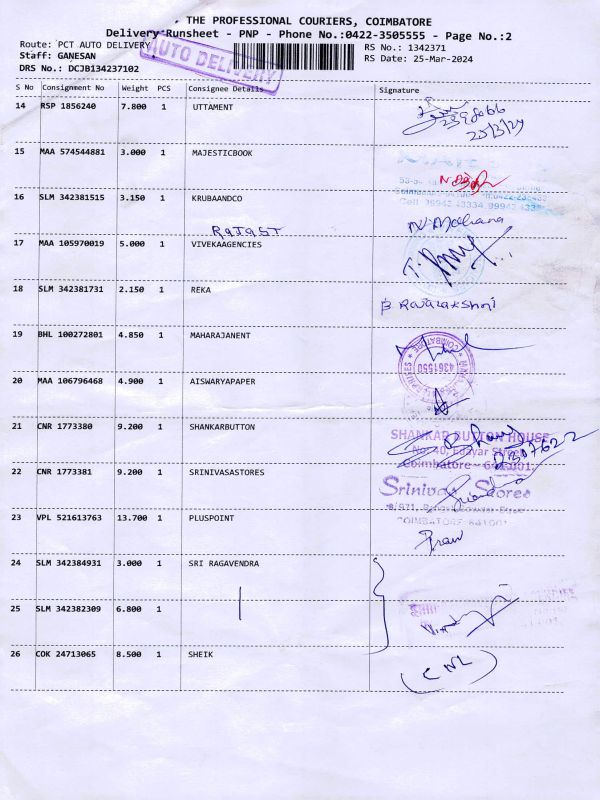 THE PROFESSIONAL COURIERS, COIMBATORE
Delivery Runsheet - PNP - Phone No.:0422-3505555 - Page No.:2
Route: PCT AUTO DELIVERY
RS No.: 1342371
Staff: GANESAN
RS Date: 25-Mar-2024
DRS No.: DCJB134237102
AUTO DELIVERY
S No Consignment No Weight PCS Consignee Details Signature
14 RSP 1856240 7.800 1 UTTAMENT
25/3/24
15 MAA 574544881 3.000 1 MAJESTICBOOK
16 SLM 342381515 3.150 1 KRUBAANDCO
RAJA ST
17 MAA 105970019 5.000 1 VIVEKAAGENCIES
18 SLM 342381731 2.150 1 REKA
19 BHL 100272801 4.850 1 MAHARAJANENT
COIMBATORE
4361550
20 MAA 106796468 4.900 1 AISWARYAPAPER
21 CNR 1773380 9.200 1 SHANKARBUTTON
SHANKAR BUTTON HOUSE
Coimbatore - 641001
22 CNR 1773381 9.200 1 SRINIVASASTORES
Stores
COIMBATORE 641001
23 VPL 521613763 13.700 1 PLUSPOINT
24 SLM 342384931 3.000 1 SRI RAGAVENDRA
25 SLM 342382309 6.800 1
26 COK 24713065 8.500 1 SHEIK